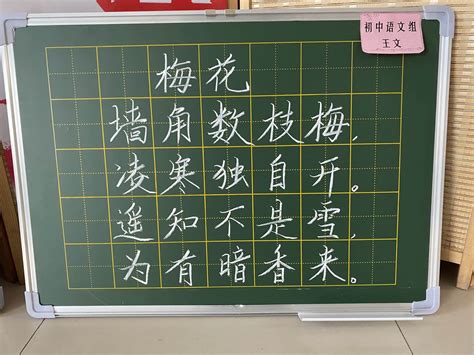 初中语文组
王文
梅花
墙角数枝梅，
凌寒独自开。
遥知不是雪，
为有暗香来。